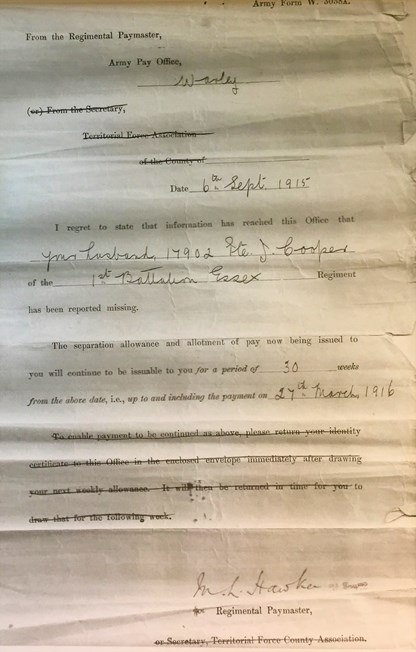 Army Form W.
From the Regimental Paymaster,
Army Pay Office,
Warley
(or) From the Secretary,
Territorial Force Association
of the County of
Date 6th Sept. 1915
I regret to state that information has reached this Office that
your husband, 17902 Pte J. Cooper
of the 1st Battalion Essex Regiment
has been reported missing.
The separation allowance and allotment of pay now being issued to
you will continue to be issuable to you for a period of 30 weeks
from the above date, i.e., up to and including the payment on 27th March, 1916
To enable payment to be continued as above, please return your identity
certificate to this Office in the enclosed envelope immediately after drawing
your next weekly allowance. It will then be returned in time for you to
draw that for the following week.
Regimental Paymaster,
or Secretary, Territorial Force County Association.